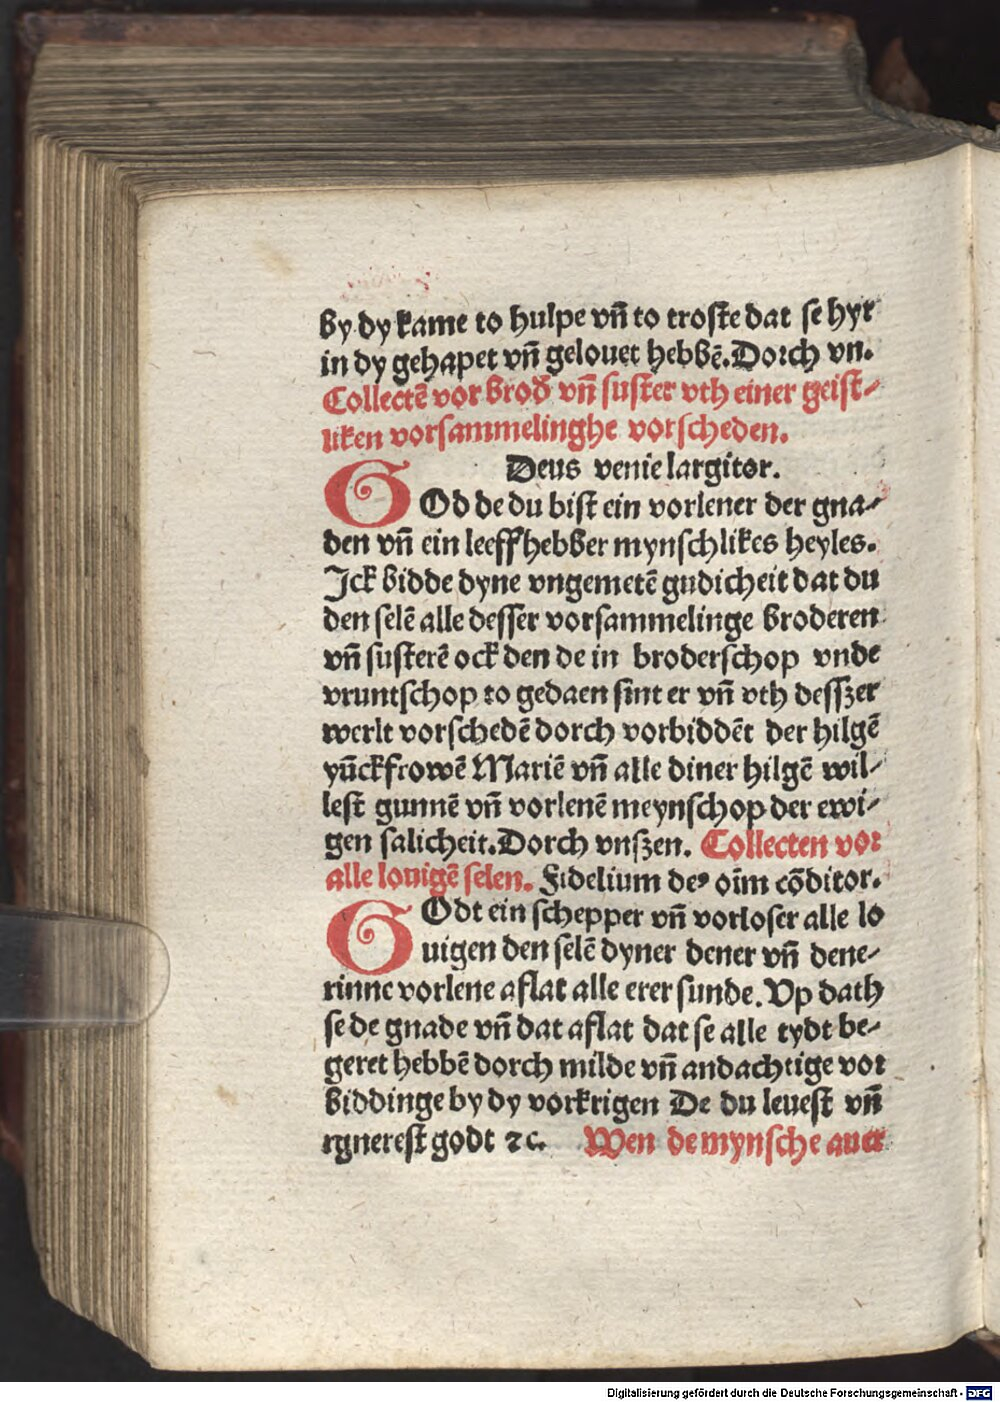 by dy kame to hulpe vñ to troste dat se hyr
in dy gehapet vñ gelouet hebbē. Dorch vn.
Collectē vor brod vñ suster vth einer geist⸗
liken vorsammelinghe vorscheden.
Deus venie largitor.
GOd de du bist ein vorlener der gna⸗
den vñ ein leeffhebber mynschlikes heyles.
Ick bidde dyne vngemetē gudicheit dat du
den selē alle desser vorsammelinge broderen
vñ susterē ock den de in broderschop vnde
vruntschop to gedaen sint er vñ vth desszer
werlt vorschedē dorch vorbiddēt der hilgē
yūckfrowē Mariē vñ alle diner hilgē wil⸗
lest gunnē vñ vorlenē meynschop der ewi⸗
gen salicheit. Dorch vnszen. Collecten vor
alle louigē selen. Fidelium deꝰ oīm cōditor.
GOdt ein schepper vñ vorloser alle lo
uigen den selē dyner dener vñ dene⸗
rinne vorlene aflat alle erer sunde. Vp dath
se de gnade vñ dat aflat dat se alle tydt be⸗
geret hebbē dorch milde vñ andachtige vor
biddinge by dy vorkrigen De du leuest vñ
rgnerest godt ⁊c. Wen de mynsche auer
Digitalisierung gefördert durch die Deutsche Forschungsgemeinschaft - DFG